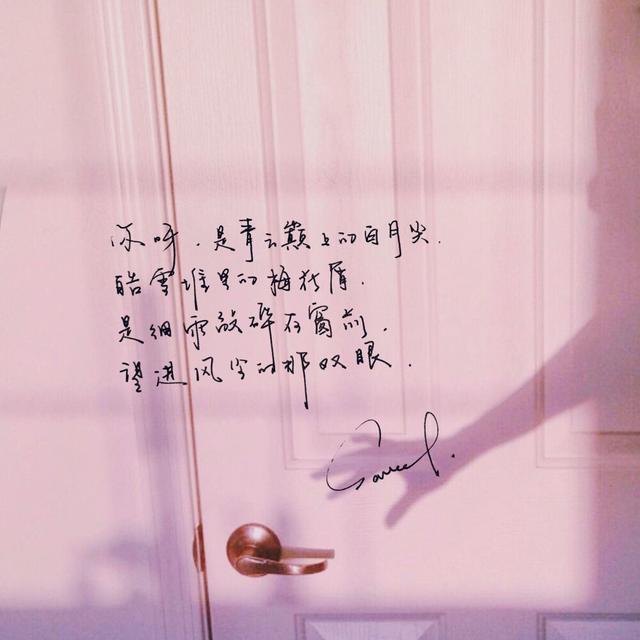 你呀．是青云巅上的白月尖．
皓雪堆里的梅花屑．
是细雨敲碎在窗前．
望进风尘的那双眼．